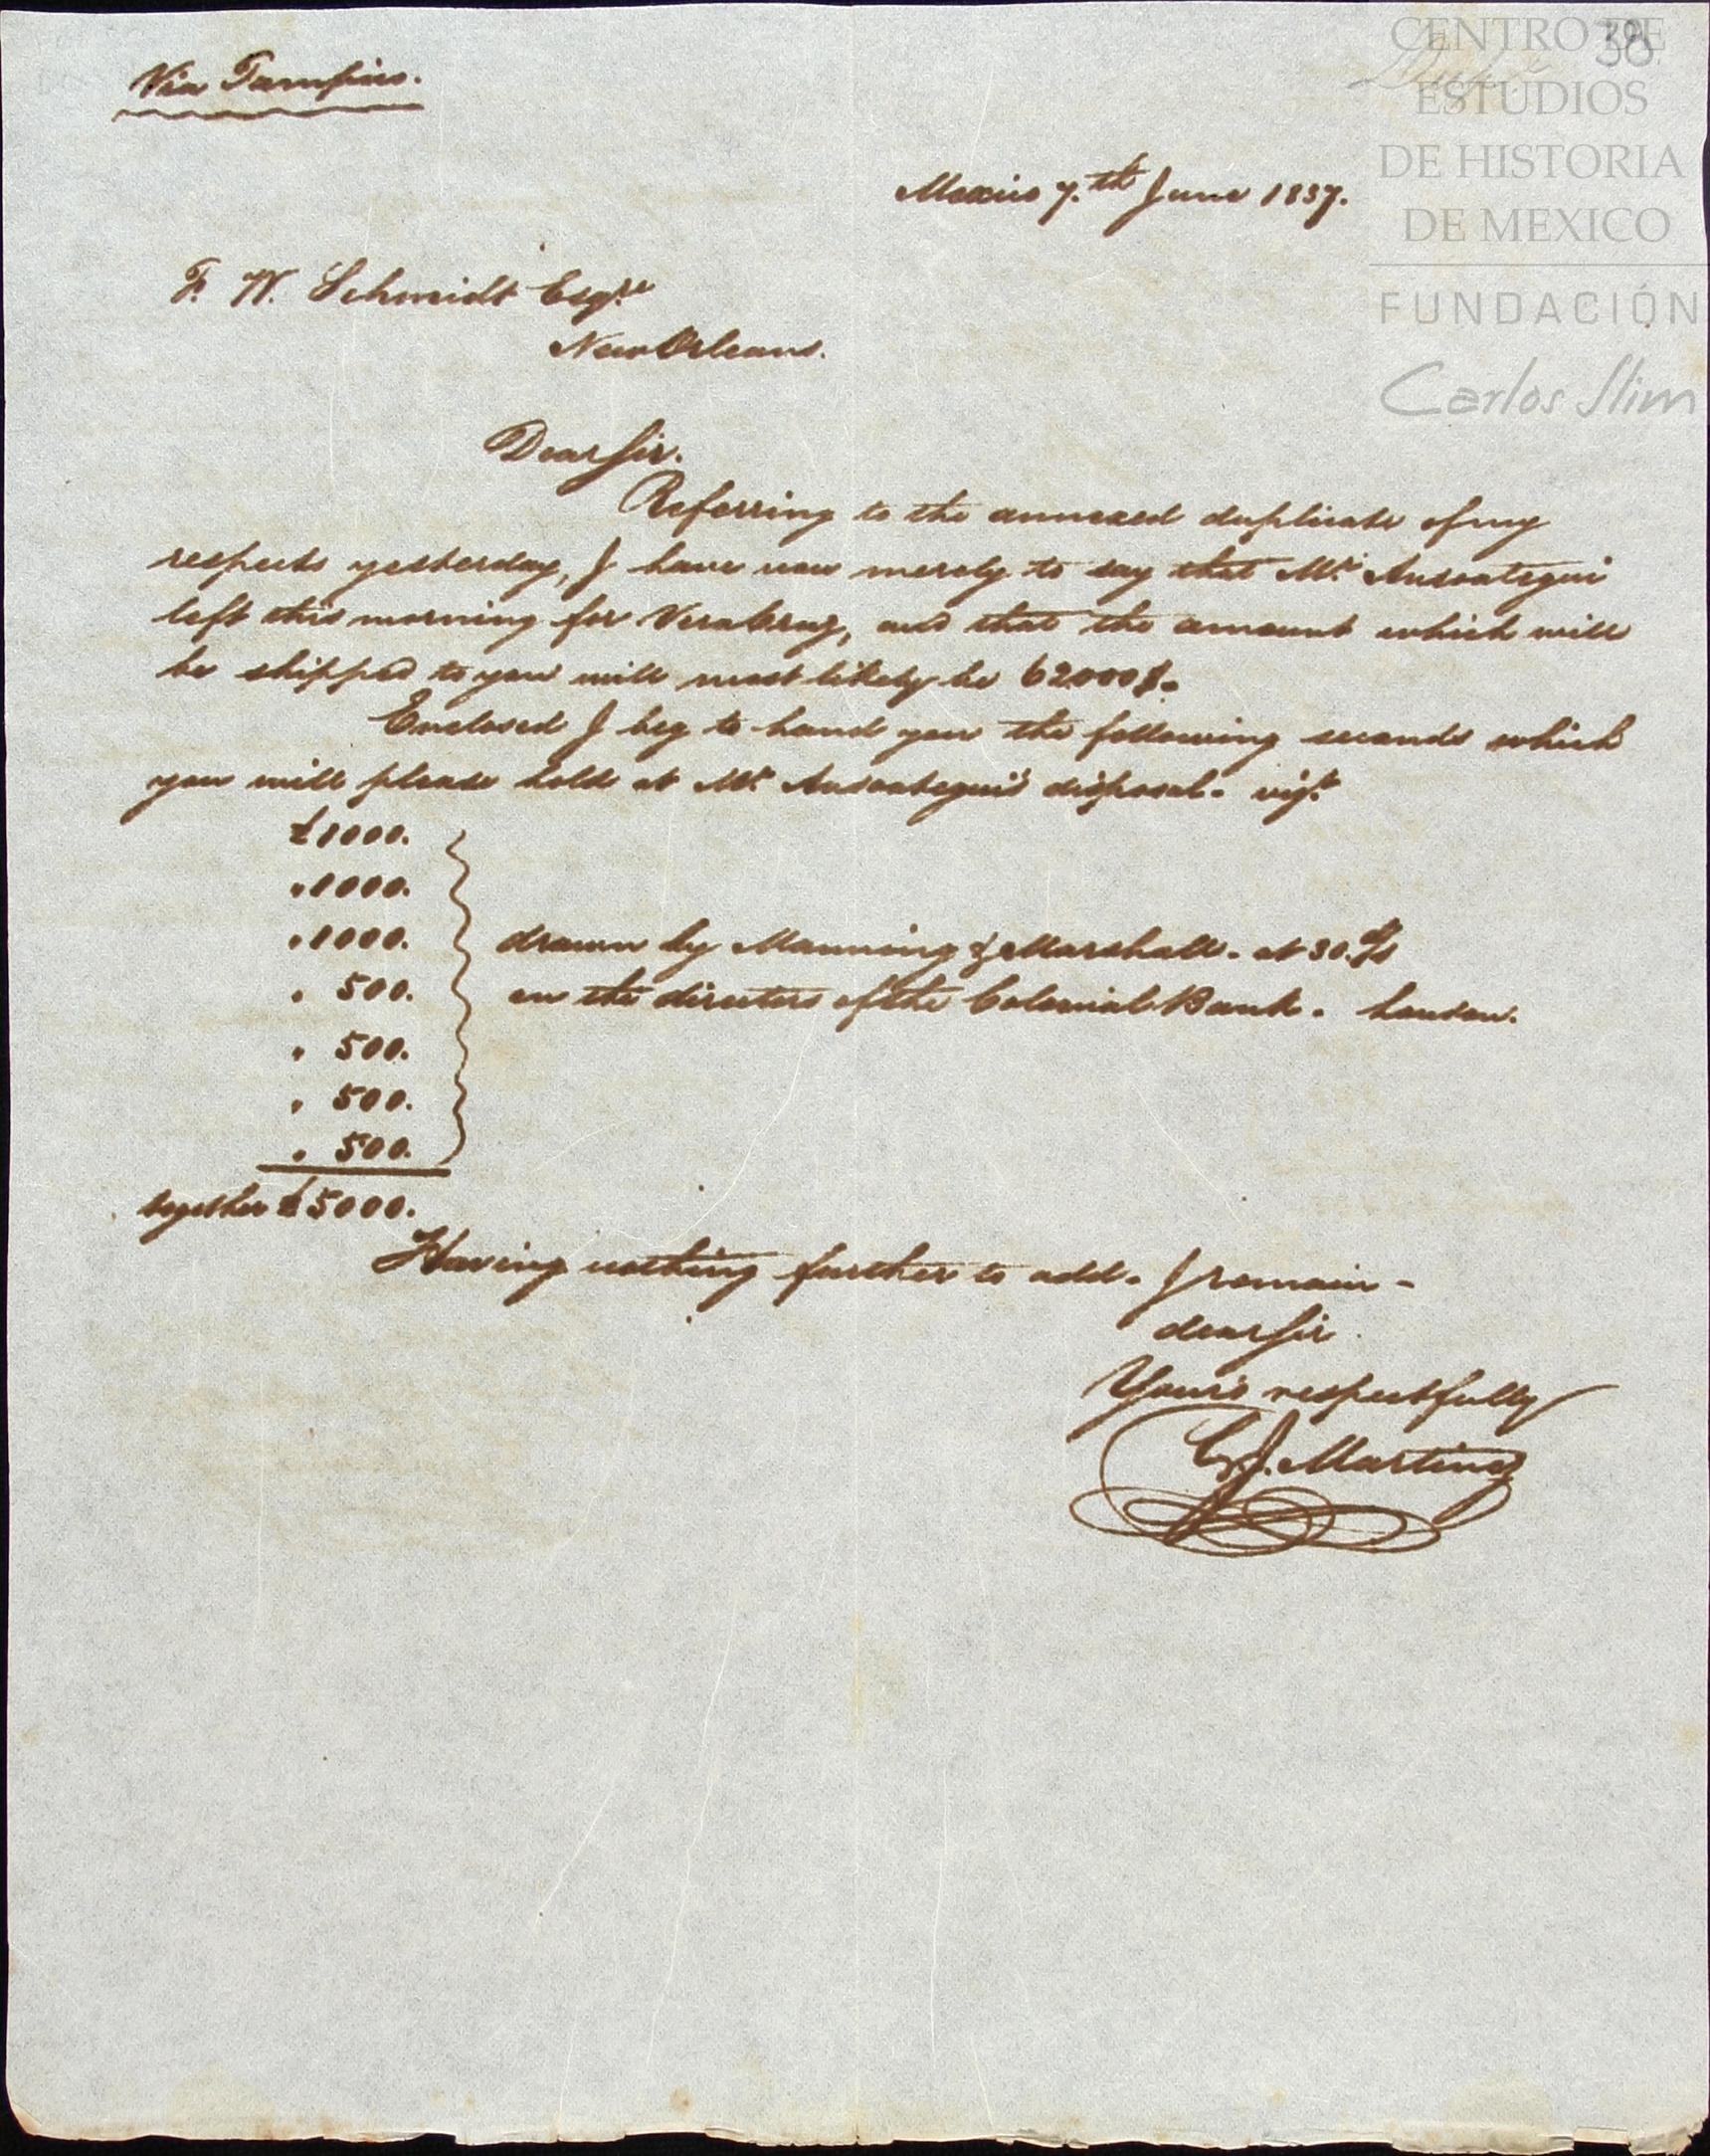 Via Tampico.
38
CENTRO DE
ESTUDIOS
DE HISTORIA
DE MEXICO
FUNDACIÓN
Carlos Slim
Mexico 7.th June 1837.
F. W. Schmidt Esqre
New Orleans.
Dear Sir.
Referring to the annexed duplicate of my
respects yesterday, I have now merely to say that Mr. Ansoategui
left this morning for VeraCruz, and that the amount which will
be shipped to you will most likely be 62000$.
Enclosed I beg to hand you the following seconds which
you will please hold at Mr. Ansoategui's disposal. vizt.
£1000.
"1000.
"1000. drawn by Manning & Marshall. at 30. d/s
" 500. on the directors of the Colonial Bank. London.
" 500.
" 500.
" 500.
together £5000.
Having nothing further to add. I remain -
dear Sir
Yours respectfully
C. J. Martinez